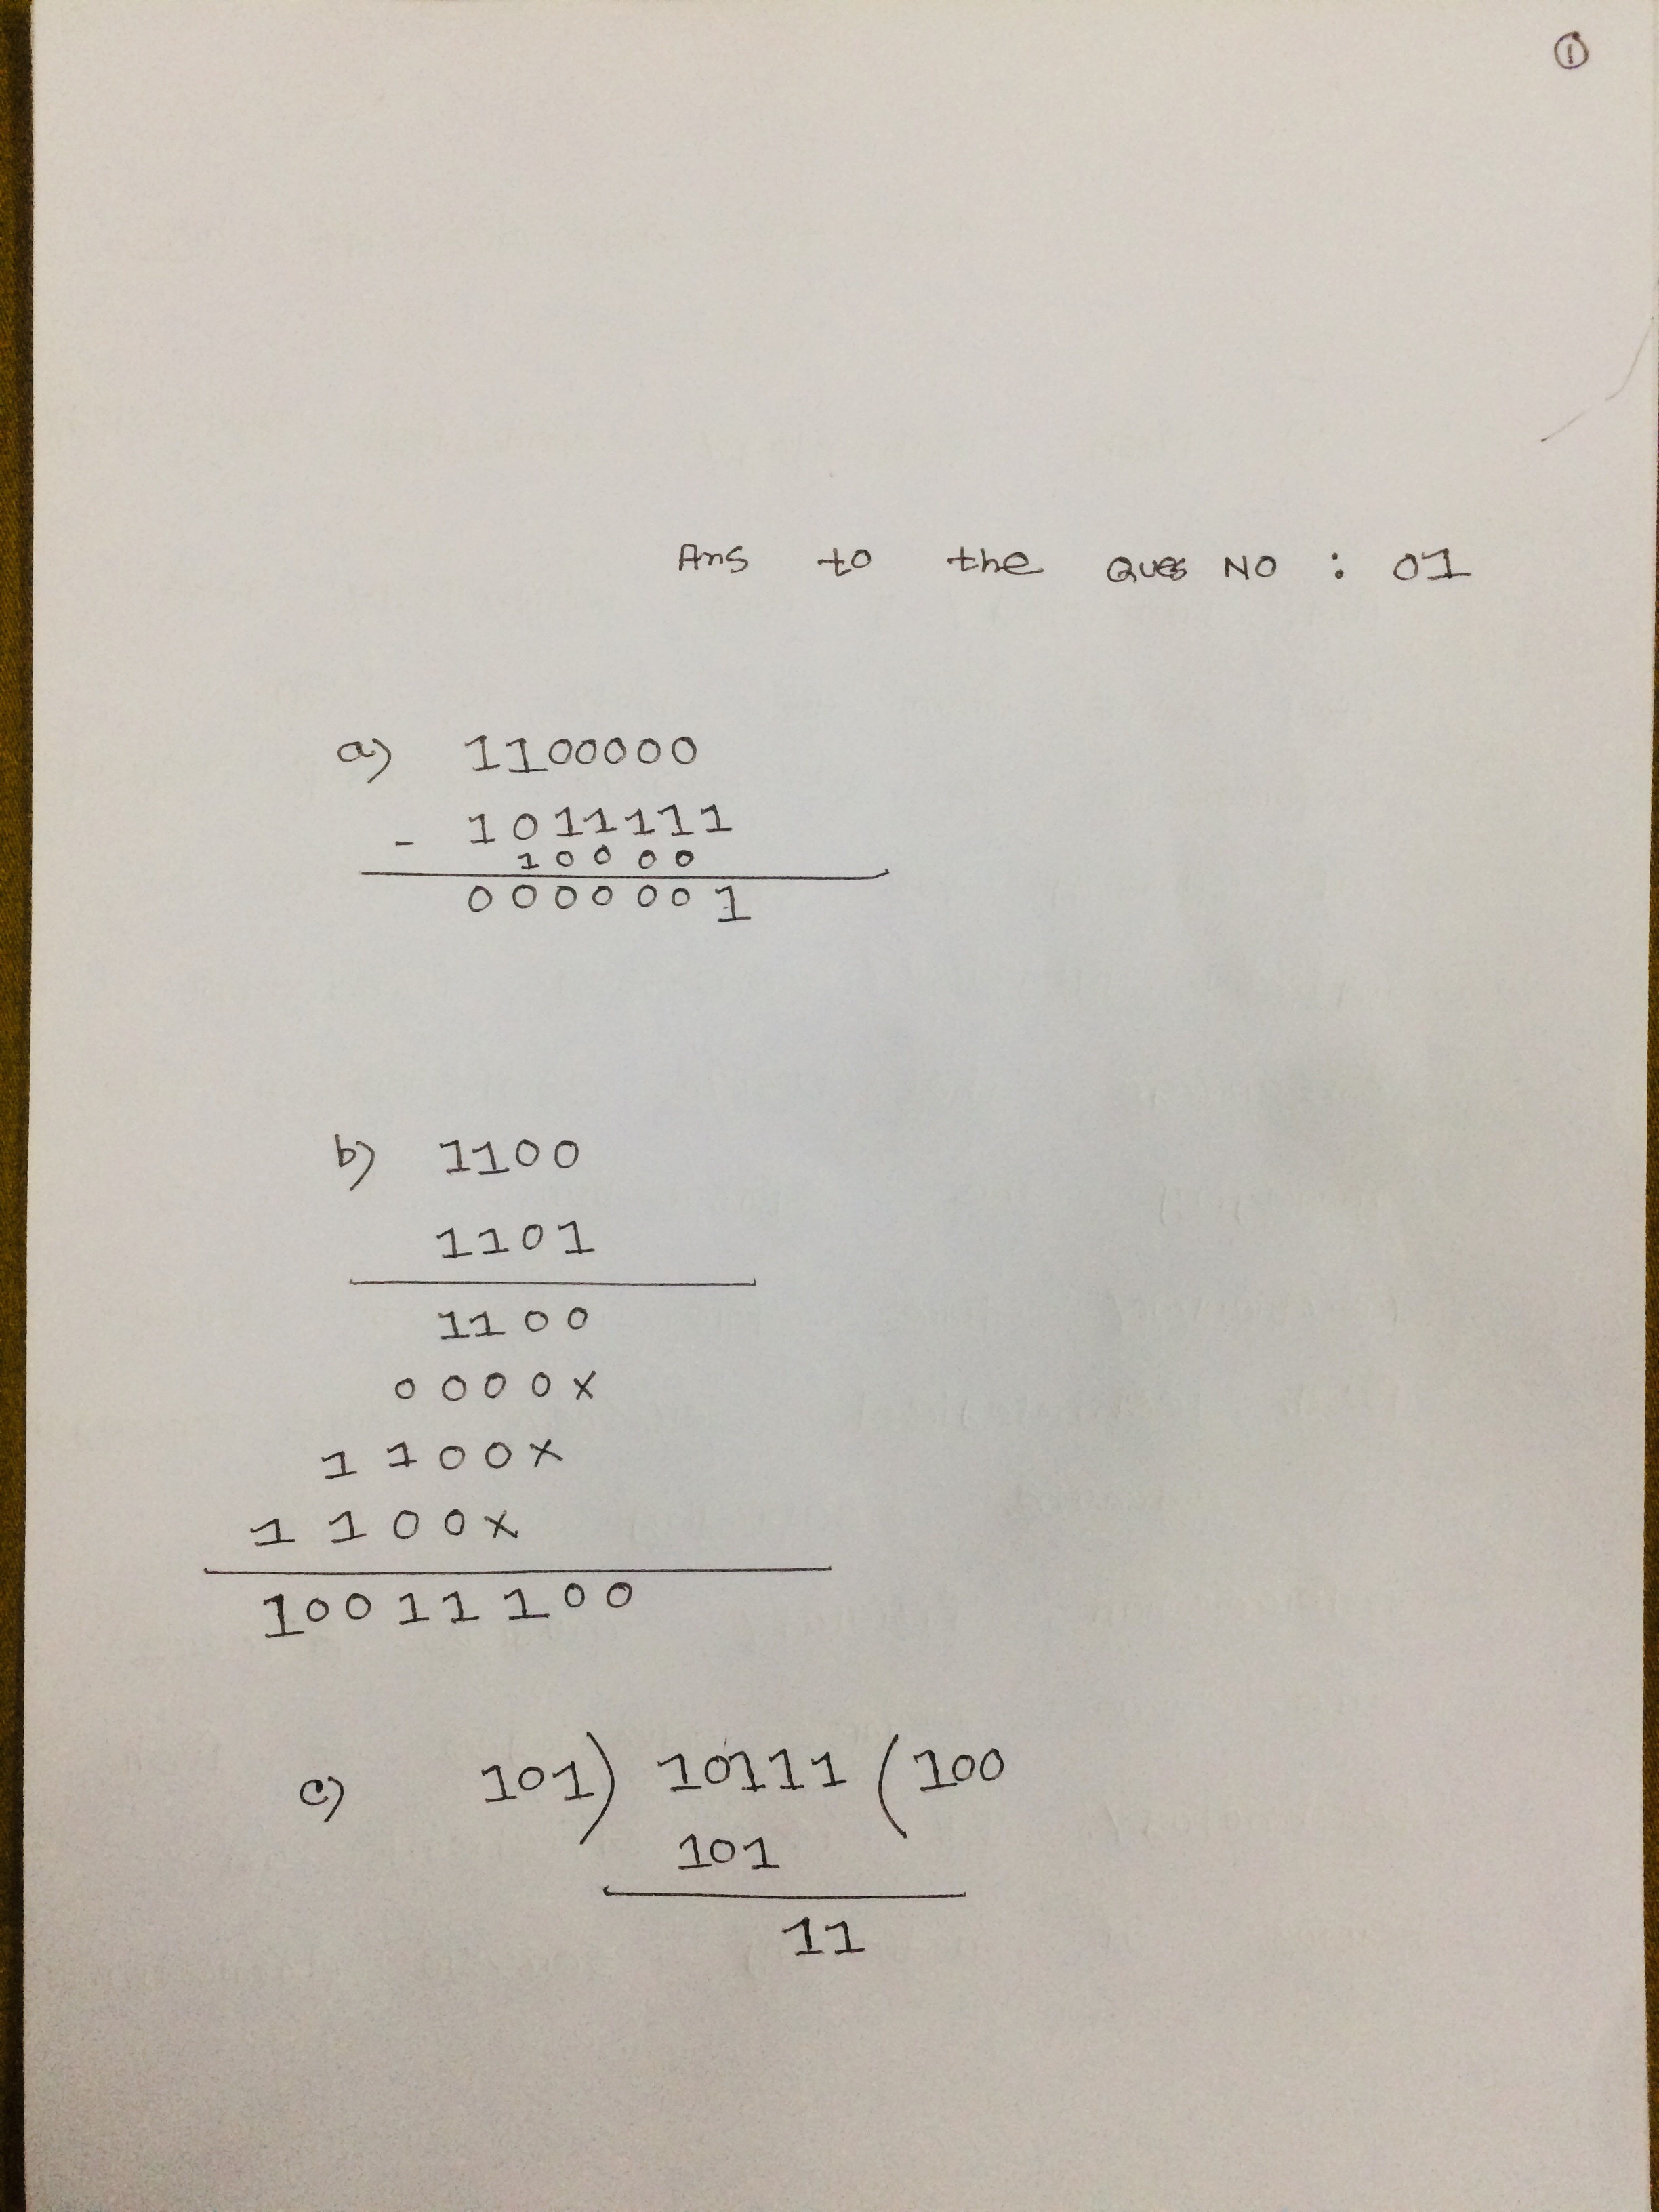 ①
Ans to the Ques NO : 01
a) 1100000
- 1011111
10000
0000001
b) 1100
1101
1100
0000x
1100x
1100x
10011100
c) 101) 10111 (100
101
11